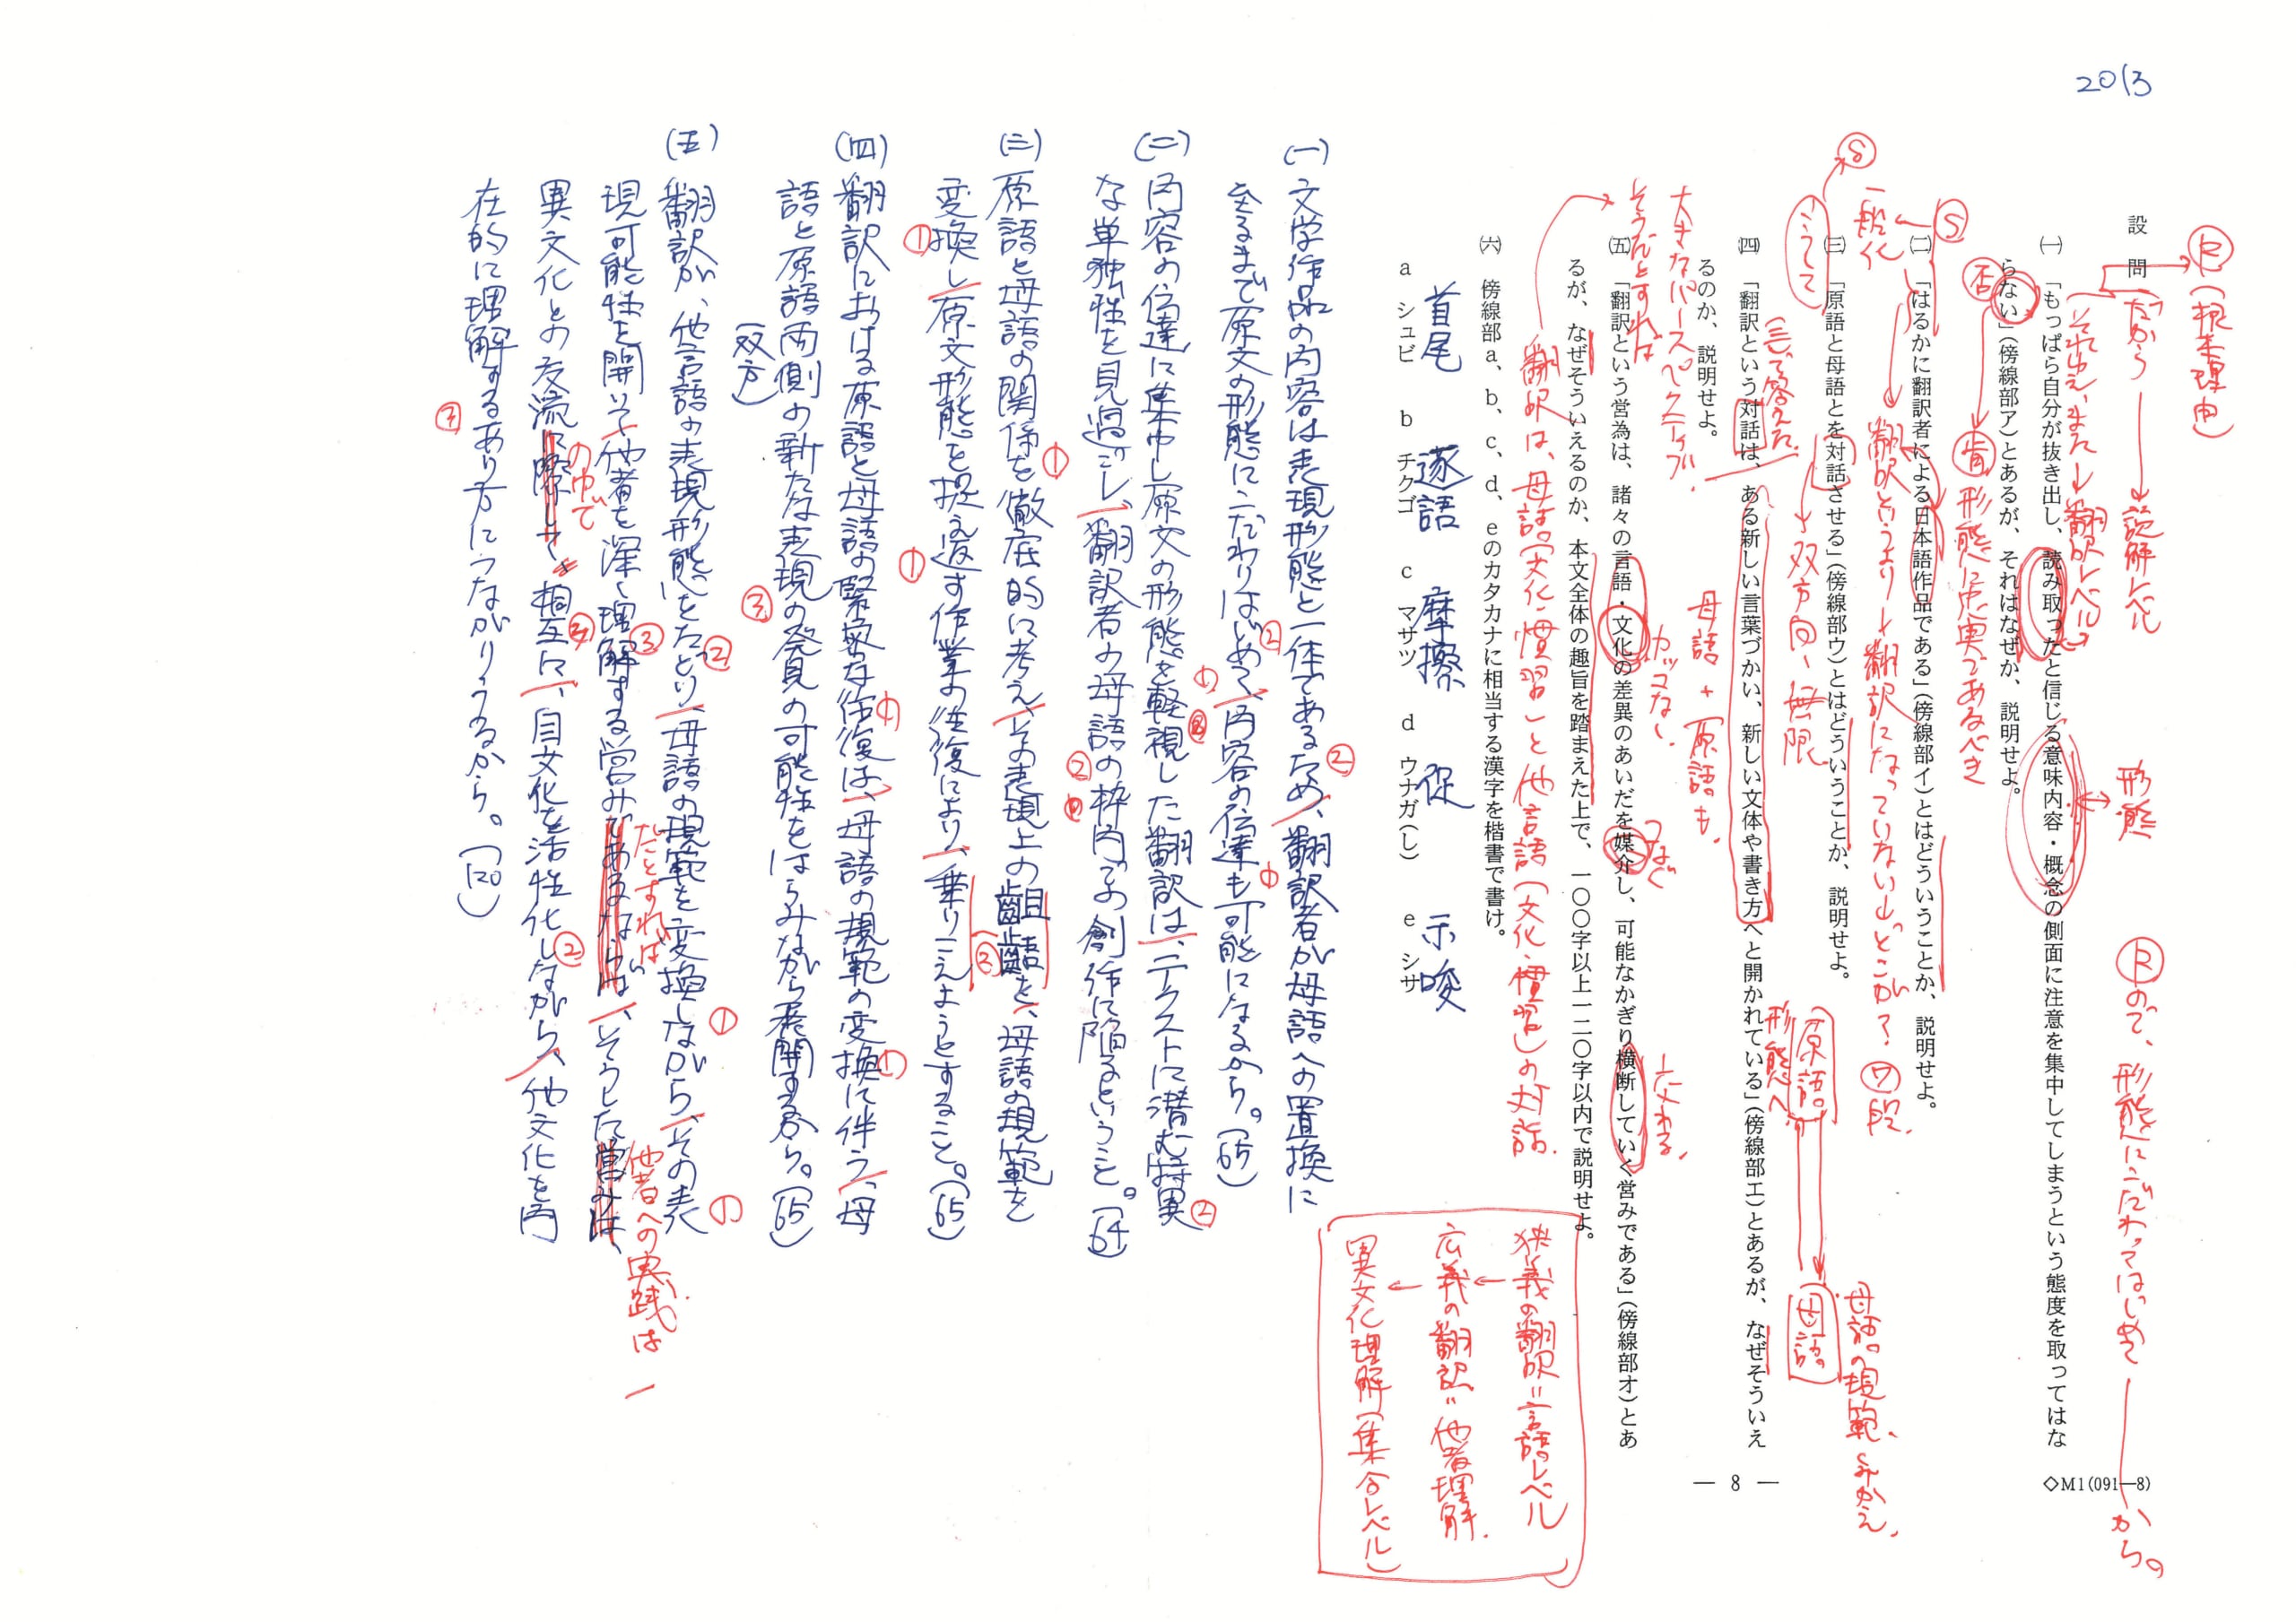 2013
Ⓡ(根本理由)
設問
だから → 読解レベル
形態
Ⓡので、形態にこだわってはじめて―から。
それゆえ、また → 翻訳レベル
㈠ 「もっぱら自分が抜き出し、読み取ったと信じる意味内容・概念の側面に注意を集中してしまうという態度を取ってはな
らない」(傍線部ア)とあるが、それはなぜか、説明せよ。
否
肯
形態に忠実であるべき
Ⓢ
一般化
㈡ 「はるかに翻訳者による日本語作品である」(傍線部イ)とはどういうことか、説明せよ。
翻訳というより→翻訳になっていない。どこが?
⑦段.
こうして
⑧
㈢ 「原語と母語とを対話させる」(傍線部ウ)とはどういうことか、説明せよ。
双方向、無限
原語
母語。
母語の規範、ふかえ、
㈣ 「翻訳という対話は、ある新しい言葉づかい、新しい文体や書き方へと開かれている」(傍線部エ)とあるが、なぜそういえ
るのか、説明せよ。
㈢で答えた
形態へ
母語+原語も.
大きなパースペクティブ.
そうだとすれば
㈤ 「翻訳という営為は、諸々の言語・文化の差異のあいだを媒介し、可能なかぎり横断していく営みである」(傍線部オ)とあ
るが、なぜそういえるのか、本文全体の趣旨を踏まえた上で、一〇〇字以上一二〇字以内で説明せよ。
つなぐ
交わる.
翻訳は、母語(文化・慣習)と他言語(文化・慣習)の対話.
㈥ 傍線部a、b、c、d、eのカタカナに相当する漢字を楷書で書け。
a シュビ b チクゴ c マサツ d ウナガ(し) e シサ
首尾 逐語 摩擦 促 示唆
狭義の翻訳=言語レベル
広義の翻訳=他者理解.
異文化理解(集合レベル)
― 8 ―
◇M1(091―8)
(一) 文学作品の内容は表現形態と一体であるため、翻訳者が母語への置換に
至るまで原文の形態にこだわりはじめて、内容の伝達も可能になるから。(65)
(二) 内容の伝達に集中し原文の形態を軽視した翻訳は、テクストに潜む特異
な単独性を見過ごし、翻訳者の母語の枠内での創作に陥るということ。(64)
(三) 原語と母語の関係を徹底的に考え、その表現上の齟齬を、母語の規範を
変換し原文形態を捉え返す作業の往復により、乗りこえようとすること。(65)
(四) 翻訳における原語と母語の緊密な往復は、母語の規範の変換に伴う、母
語と原語両側の新たな表現の発見の可能性をはらみながら展開するから。(65)
(双方)
(五) 翻訳が、他言語の表現形態をたどり、母語の規範を変換しながら、その表
現可能性を開いて他者を深く理解する営みであるならば、そうした営みは、
だとすれば
他者への実践は
異文化との交流に際して、相互に、自文化を活性化しながら、他文化を内
の中で
在的に理解するあり方につながりうるから。(120)